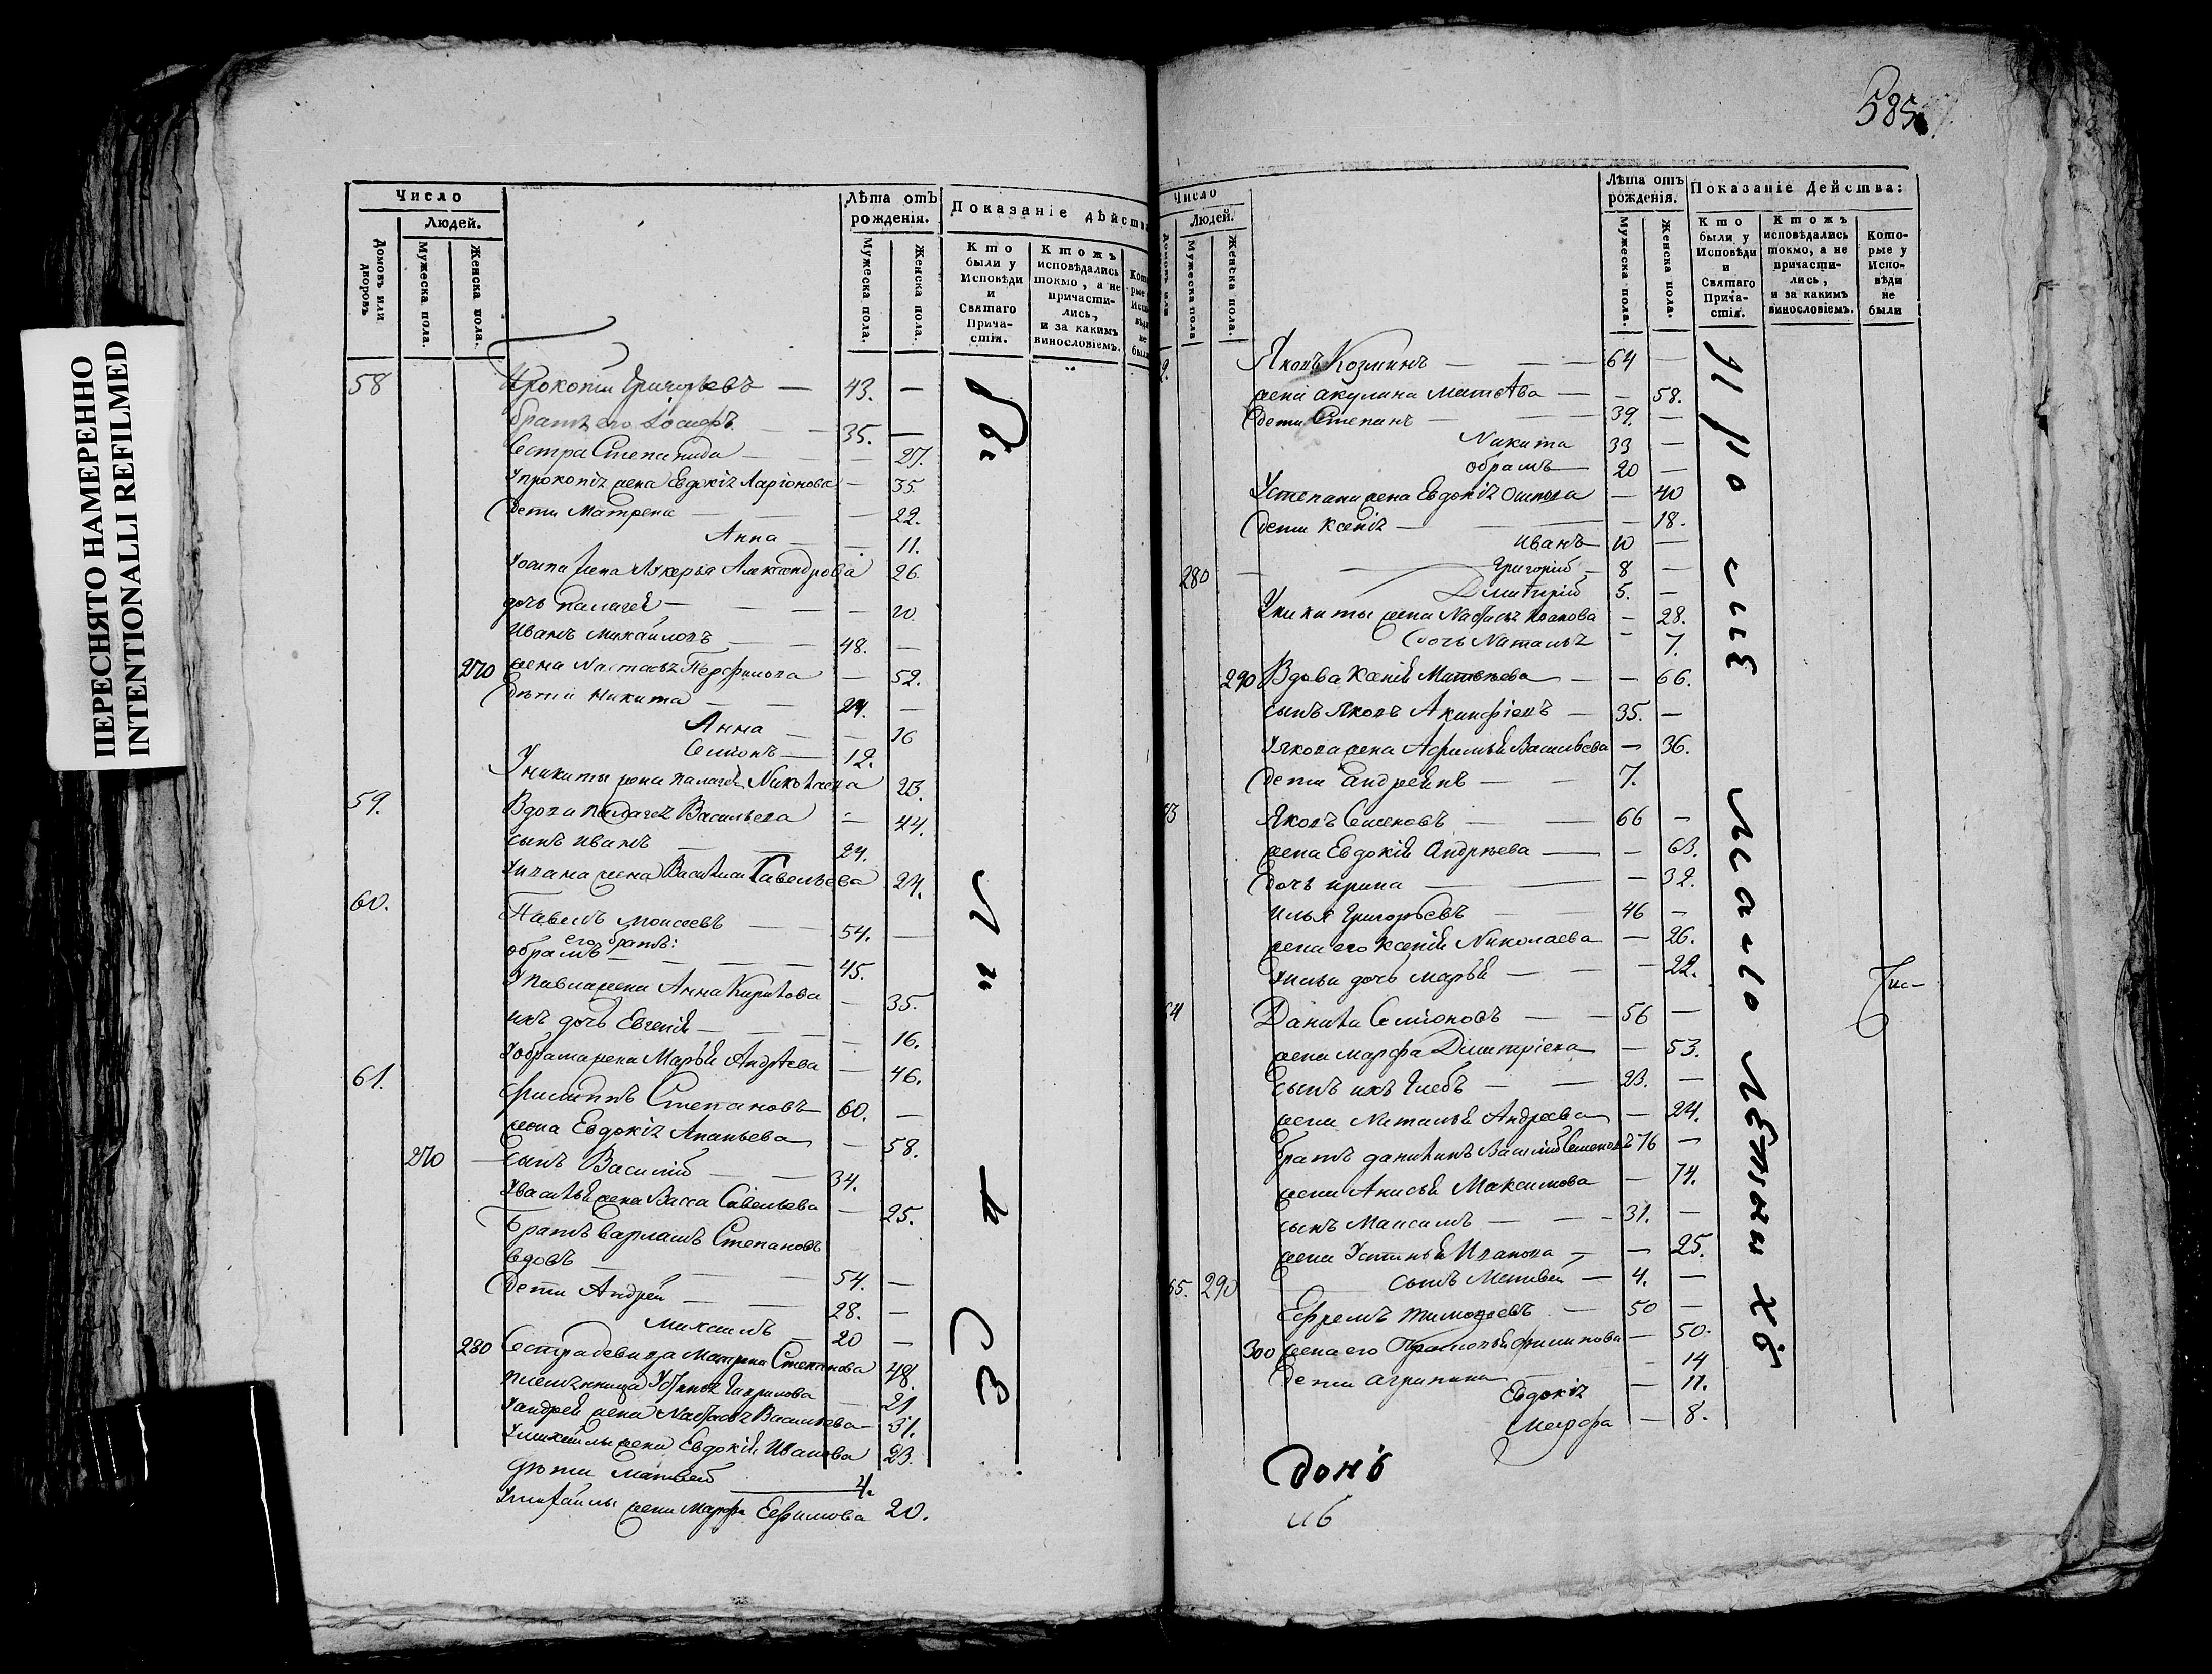 ПЕРЕСНЯТО НАМЕРЕННО
INTENTIONALLI REFILMED
Число
Людей.
Домовъ или дворовъ
Мужеска пола.
Женска пола.
Лѣта отъ рожденія.
Мужеска пола.
Женска пола.
Показаніе дѣйств
Кто были у Исповѣди и Святаго Прича-стія.
Ктожъ исповѣдались токмо, а не причасти-лись, и за какимъ винословіемъ.
58 Прокопій Григорьевъ — 43. —
братъ его Іосифъ — — 35. —
Сестра Степанида — — 27.
У прокопіѧ жена Евдокіѧ Ларіонова — 35.
Дети Матрена — — — 22.
Анна — — 11.
жена Лукерья Александрова 26.
дочь Палагеѧ — — — 20.
Иванъ Михайловъ — 48. —
270 жена Настасьѧ Перфилова — 52.
Дѣти Никита — — 24. —
Анна — — 16
Семіонъ — 12.
У никиты жена палагеѧ Николаева 23.
59. Вдова Палагеѧ Васильева — 44.
сынъ Иванъ — 24.
У ивана жена Василиса Савельева 24.
60. Павелъ Моисеевъ — 54. —
его братъ:
обрамъ — — — — 45.
У павла жена Анна Кирилова — 35.
ихъ дочь Евгеніѧ — — — 16.
У обрама жена Марьѧ Андрѣева — 46.
61. Филиппъ Степановъ 60. —
жена Евдокіѧ Ананьева — 58.
270 — сынъ Василій — 34.
У васильѧ жена Васса Савельева — 25.
Братъ варламъ Степановъ
вдовъ — — — 54. —
Дети Андрей — — 28. —
Михаилъ — 20 —
280 Сестра девица Матрена Степанова 48.
племѧнница Устиньѧ Гаврилова 21
У андреѧ жена Настасьѧ Васильева — 31.
У михаилы жена Евдокіѧ Иванова 23.
дѣти Матвей — 4.
жена Марфа Ефимова 20.
585
Число
Людей.
Мужеска пола
Женска пола.
Лѣта отъ рожденія.
Мужеска пола.
Женска пола.
Показаніе Действа:
Кто были у Исповѣди и Святаго Прича-стія.
Ктожъ исповѣдались токмо, а не причасти-лись, и за какимъ винословіемъ.
Кото-рые у Испо-вѣди не были
Яковъ Козминъ — — — 64 —
жена акулина Матвѣва — — 58.
Дети Степанъ — — 39. —
Никита 33 —
обрамъ — 20 —
У степана жена Евдокіѧ Осипова — 40
Дети Ксеніѧ — — — 18.
Иванъ — 10 —
280 — Григорій — 8 —
Дмитрій 5. —
У никиты жена Настасьѧ Иванова — 28.
дочь Натальѧ — 7.
290 Вдова Ксеніѧ Матвѣева — — 66.
сынъ Яковъ Акинфіевъ — 35. —
У якова жена Афимьѧ Васильева — 36.
Дети Андреѧнъ — — 7.
Яковъ Семеновъ — — 66 —
жена Евдокіѧ Андрѣева — — 63.
дочь ирина — — — 32.
Илья Григорьевъ — — 46 —
жена его Ксеніѧ Николаева — 26.
У ильи дочь Марьѧ — — — 22.
64 Данила Семіоновъ — — 56 —
жена марфа Дмитріева — 53.
сынъ ихъ Глебъ — — 23. —
жена Натальѧ Андреева — 24.
братъ данилинъ Василій Семеновъ 76 —
жена Анисьѧ Максимова — 74.
сынъ Максимъ — — 31. —
жена Устиньѧ Иванова — — 25.
65. 290 сынъ Матвей — 4. —
Ефремъ тимофеевъ — 50 —
300 жена его Филипова — 50.
Дети агрипина — 14
Евдокіѧ — 11.
Марфа — 8.